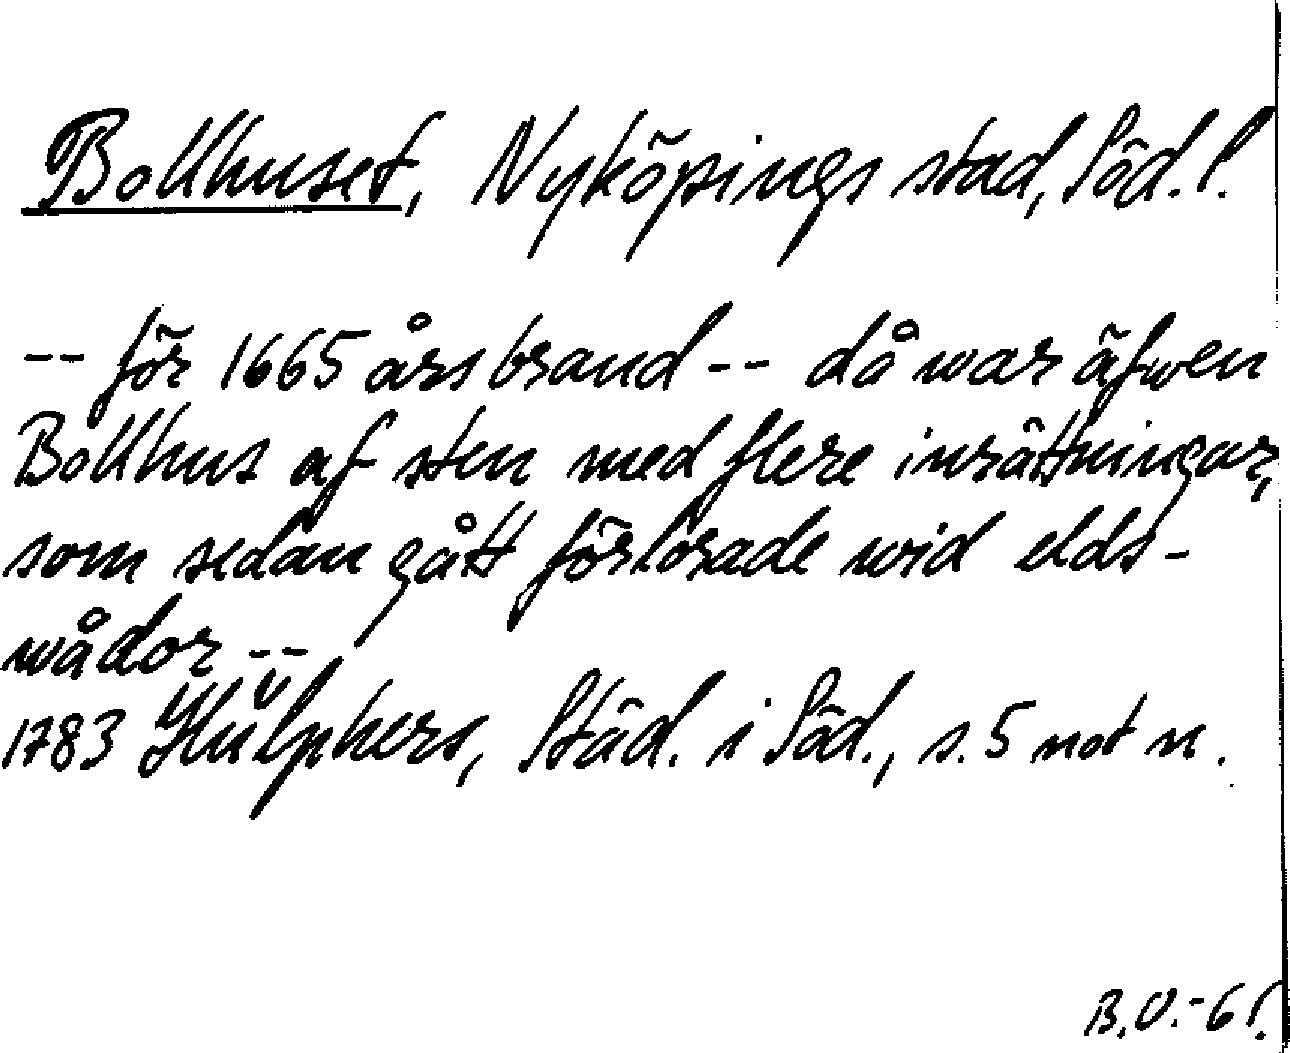 Bollhuset, Nyköpings stad, Söd. l.
-- för 1665 års brand -- då war äfwen
Bollhus af sten med flere inrättningar,
som sedan gått förlorade wid elds-
wådor --
1783 Hülphers, Städ. i Söd., s. 5 not n.
B.O.-61.